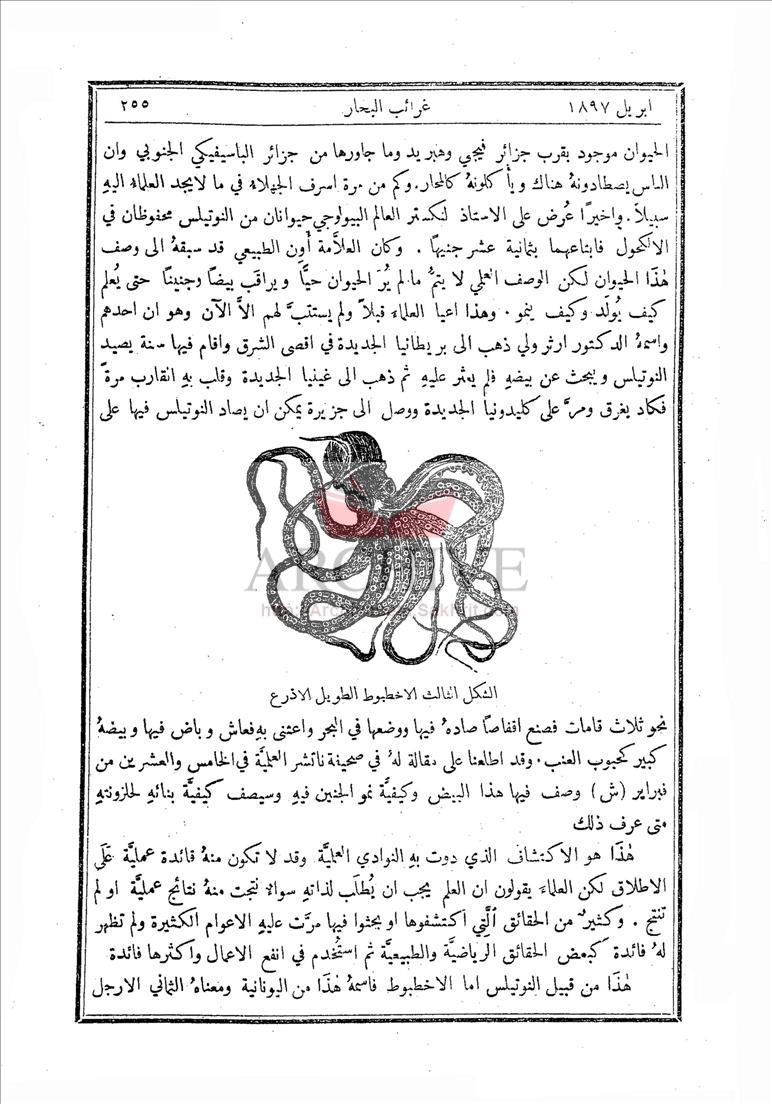 ابريل ١٨٩٧ غرائب البحار ٢٥٥
الحيوان موجود بقرب جزائر فيجي وهبريد وما جاورها من جزائر الباسيفيكي الجنوبي وان
الناس يصطادونهُ هناك ويأكلونهُ كالمحار. وكم من مرة اسرف الجهلاء في ما لا يجد العلماء اليهِ
سبيلاً. واخيرًا عُرض على الاستاذ لنكستر العالم البيولوجي حيوانان من النوتيلس محفوظان في
الالكحول فابتاعهما بثمانية عشر جنيهًا. وكان العلاَّمة أون الطبيعي قد سبقهُ الى وصف
هٰذَا الحيوان لكن الوصف العلمي لا يتمُّ ما لم يُرَ الحيوان حيًّا ويراقَب بيضًا وجنينًا حتى يُعلم
كيف يُولَد وكيف ينمو. وهذا اعيا العلماء قبلاً ولم يستتبَّ لهم الاَّ الآن وهو ان احدهم
واسمهُ الدكتور ارثر ولي ذهب الى بريطانيا الجديدة في اقصى الشرق واقام فيها سنة يصيد
النوتيلس ويبحث عن بيضهِ فلم يعثر عليهِ ثم ذهب الى غينيا الجديدة وقلب بهِ القارب مرةً
فكاد يغرق ومرَّ على كليدونيا الجديدة ووصل الى جزيرة يمكن ان يصاد النوتيلس فيها على
ARCHIVE
الشكل الثالث الاخطبوط الطويل الاذرع
نحو ثلاث قامات فصنع اقفاصًا صادهُ فيها ووضعها في البحر واعتنى بهِ فعاش وباض فيها وبيضهُ
كبير كحبوب العنب. وقد اطلعنا على مقالة لهُ في صحيفة ناتشر العلميَّة في الخامس والعشرين من
فبراير (ش) وصف فيها هذا البيض وكيفيَّة نمو الجنين فيهِ وسيصف كيفيَّة بنائهِ لحلزونتهِ
متى عرف ذلك
هٰذَا هو الاكتشاف الذي دوت بهِ النوادي العلميَّة وقد لا تكون منهُ فائدة عمليَّة عَلَى
الاطلاق لكن العلماءَ يقولون ان العلم يجب ان يُطلَب لذاتهِ سوالا نتجت منهُ نتائج عمليَّة او لم
تنتج. وكثيرٌ من الحقائق الَّتِي اكتشفوها او بحثوا فيها مرَّت عليهِ الاعوام الكثيرة ولم تظهر
لهُ فائدة كبعض الحقائق الرياضيَّة والطبيعيَّة ثم استُخدم في انفع الاعمال واكثرها فائدة
هٰذَا من قبيل النوتيلس اما الاخطبوط فاسمهُ هٰذَا من اليونانية ومعناهُ الثماني الارجل